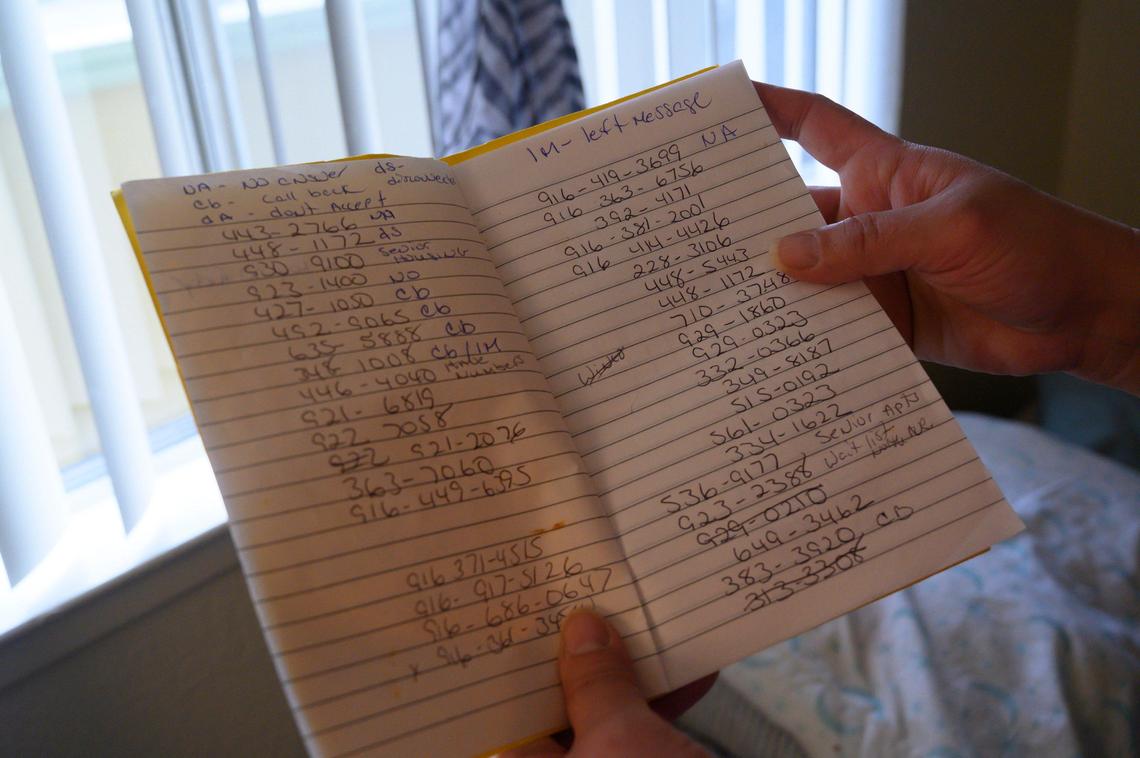 NA - No answer ds-
Cb - Call back
dA - dont Accept
443-2766 NA
448-1172 ds
930-9100 Senior Housing
923-1400 NO
427-1050 Cb
452-9065 Cb
635-5888 Cb
348-1008 Cb/1M
446-4040
921-6819
922-7058
921-2076
363-7060
916-449-6395
916 371-4515
916-917-5126
916-686-0647
1M- left message
916-419-3699 NA
916-363-6756
392-4171
916-381-2001
916 414-4426
228-3106
448-5443
448-1172
710-3748
929-1860
929-0323
332-0366
349-8187
515-0192
561-0323
334-1622
536-9177 Senior Apts
923-2388 Wait list
929-0210
649-3462
383-3920 CB
313-3308